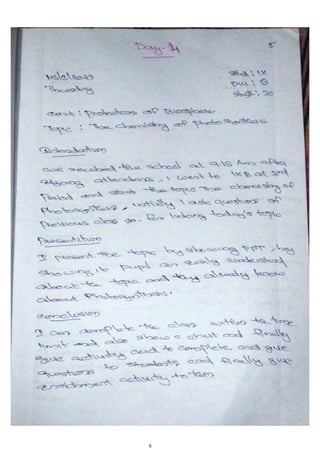 Day - 4
5
Std : IX
Thursday
Div : B
Unit : Protectors of Biosphere.
Topic : The chemistry of photosynthesis.
Introduction
we reached the school at 9.15 Am after
signing attendance, I went to IX B at 3rd
Period and start the topic The chemistry of
Photosynthesis, initially I ask questions of
Previous class for linking today's topic
Presentation
I present the topic by showing PPT, by
showing it pupil can easily understand
about the topic and they already know
about Photosynthesis.
Conclusion
I can complete the class within the time
limit and also show a chart and finally
give activity card to complete and give
questions to students and finally give
enrichment activity to them
5